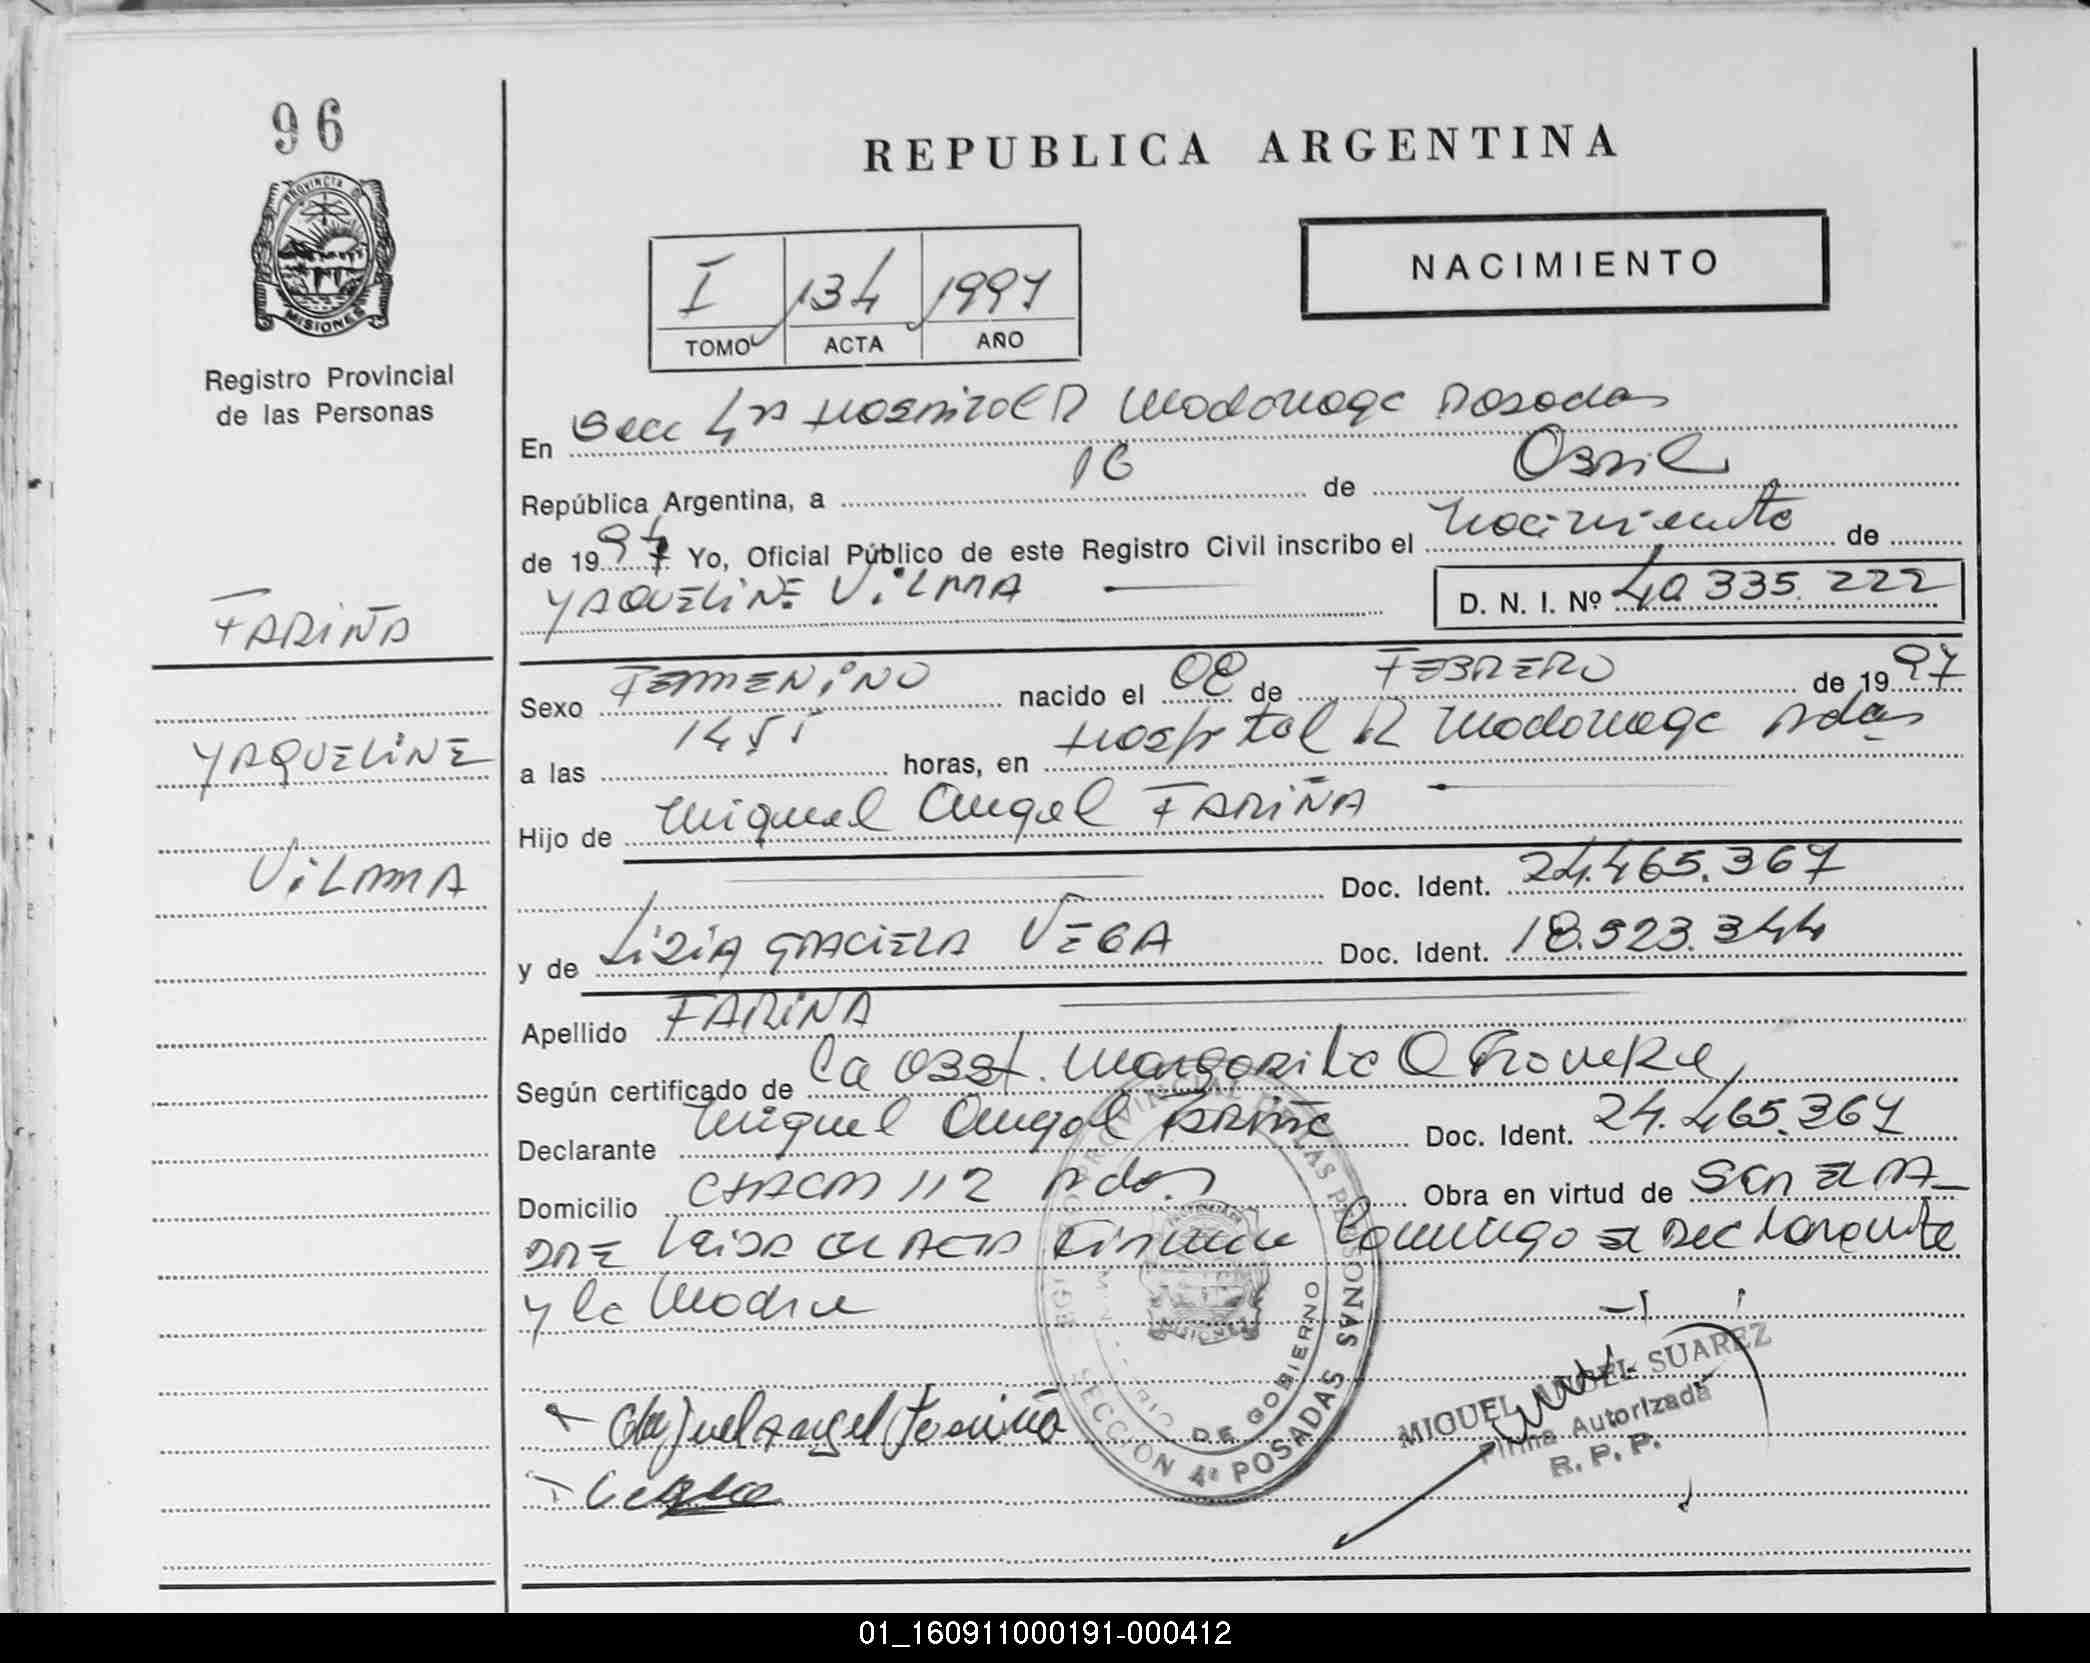 96
PROVINCIA D
MISIONES
Registro Provincial
de las Personas
REPUBLICA ARGENTINA
NACIMIENTO
I 134 1997
TOMO ACTA AÑO
En Secc 4ta Hospital R Madariaga Posadas
República Argentina, a 16 de Abril
de 1997 Yo, Oficial Público de este Registro Civil inscribo el nacimiento de
YAQUELINE VILMA D. N. I. Nº 40 335.222
FARIÑA
YAQUELINE
VILMA
Sexo FEMENINO nacido el 08 de FEBRERO de 1997
a las 1455 horas, en Hospital R Madariaga Pdas
Hijo de Miguel Angel FARIÑA
Doc. Ident. 24.465.367
y de LIDIA GRACIELA VEGA Doc. Ident. 18.523.344
Apellido FARIÑA
Según certificado de la Obst. Margarita
Declarante Miguel Angel Fariña Doc. Ident. 24.465.367
Domicilio CHACRA 112 Pdas Obra en virtud de SER EL PA-
DRE Leida el ACTA Firman Conmigo el Declarante
y la Madre
Miguel Angel Fariña
MIGUEL ANGEL SUAREZ
Firma Autorizada
R. P. P.
REGISTRO PROVINCIAL DE LAS PERSONAS
MINISTERIO DE GOBIERNO
MISIONES
SECCION 4ª POSADAS
01_160911000191-000412